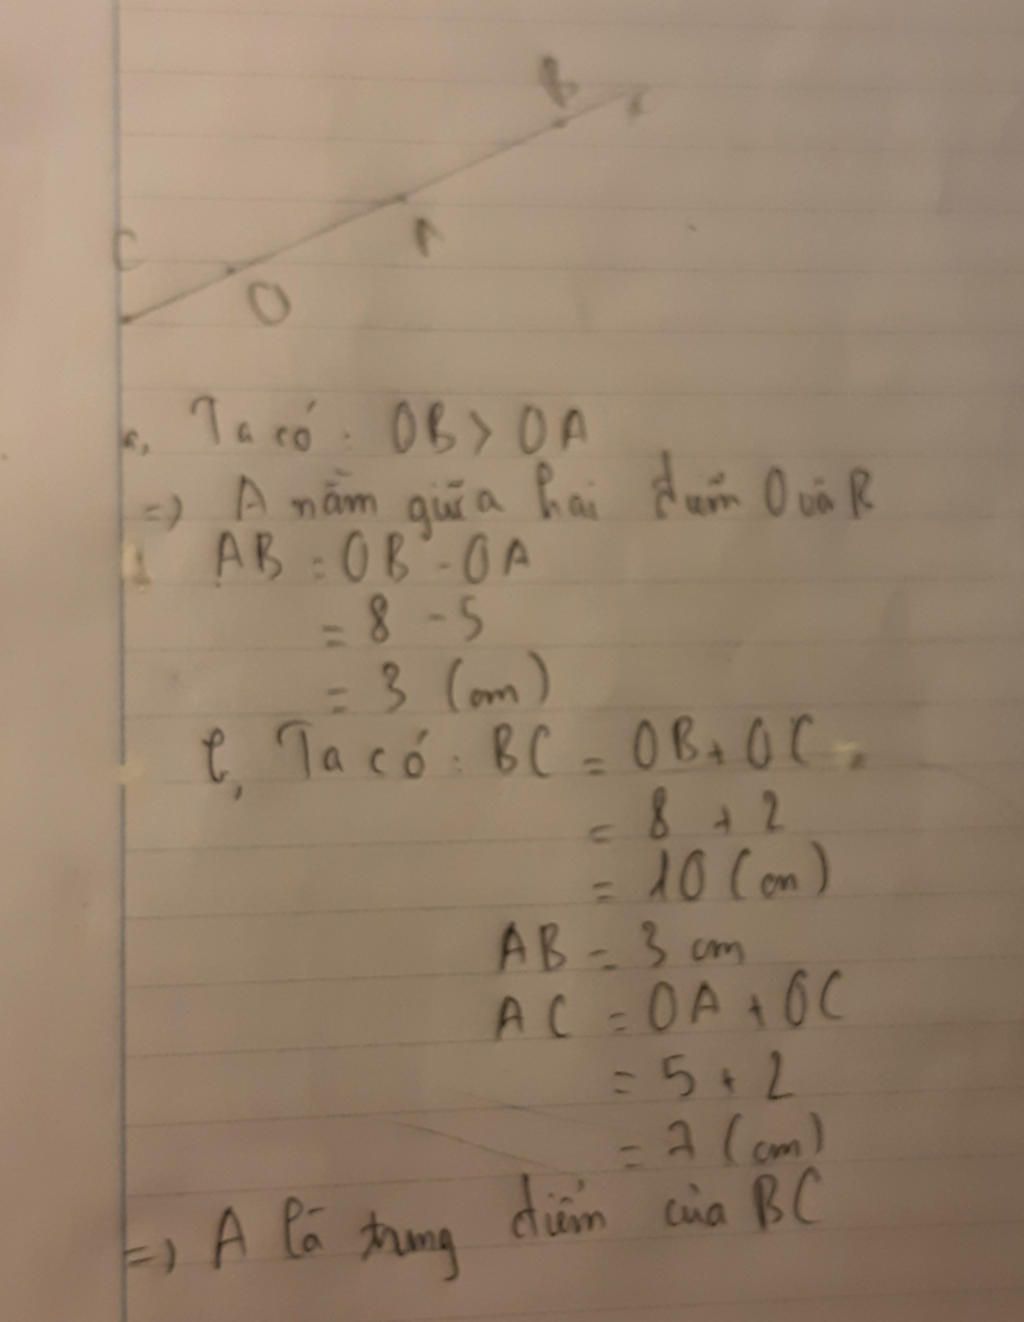 B
x
A
C
O
a, Ta có: OB > OA
=> A nằm giữa hai điểm O và B
AB = OB - OA
= 8 - 5
= 3 (cm)
b, Ta có: BC = OB + OC
= 8 + 2
= 10 (cm)
AB = 3 cm
AC = OA + OC
= 5 + 2
= 7 (cm)
=> A là trung điểm của BC